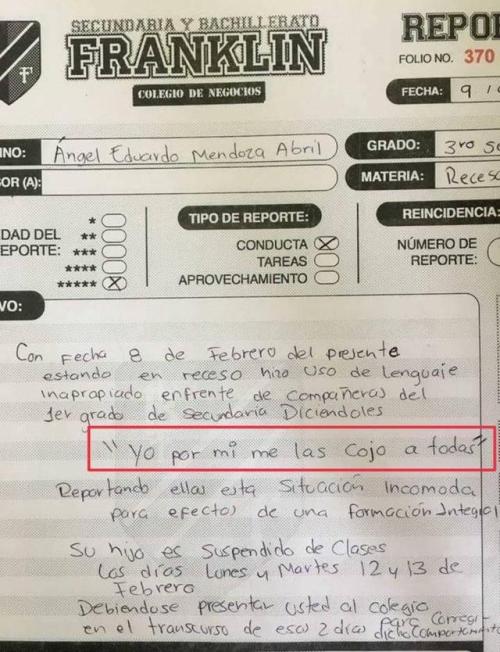 SECUNDARIA Y BACHILLERATO
FRANKLIN
COLEGIO DE NEGOCIOS
F
REPOR
FOLIO NO. 370
FECHA: 9
NO: Ángel Eduardo Mendoza Abril
GRADO: 3ro
SOR (A):
MATERIA: Receso
DAD DEL
EPORTE:
*
**
***
****
*****
TIPO DE REPORTE:
CONDUCTA X
TAREAS
APROVECHAMIENTO
REINCIDENCIA:
NÚMERO DE
REPORTE:
VO:
Con Fecha 8 de Febrero del presente
estando en receso hizo uso de Lenguaje
inapropiado enfrente de Compañeras del
1er grado de Secundaria Diciendoles
"Yo por mi me las cojo a todas"
Reportando ellas esta Situación Incomoda
para efectos de una formación Integral
Su hijo es Suspendido de Clases
Los días Lunes y Martes 12 y 13 de
Febrero
Debiendose presentar usted al colegio
en el transcurso de esos 2 días para Corregir
dicho Comportamiento